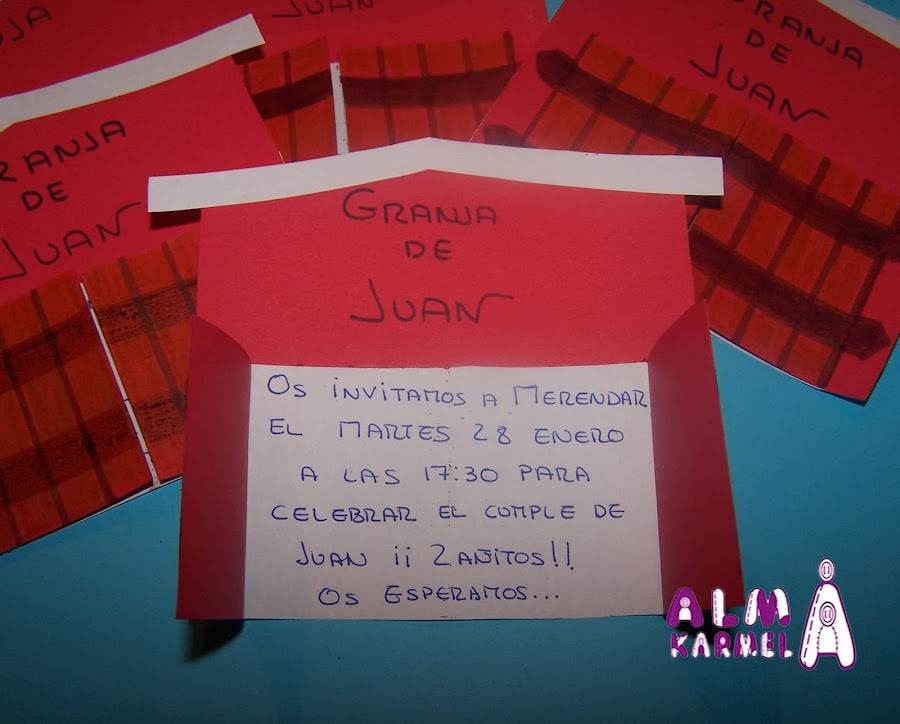 NJA
JUAN
GRANJA
DE
JUAN
RANJA
DE
JUAN
GRANJA
DE
JUAN
OS INVITAMOS A MERENDAR
EL MARTES 28 ENERO
A LAS 17:30 PARA
CELEBRAR EL CUMPLE DE
JUAN ¡¡ 2 AÑITOS!!
OS ESPERAMOS...
ALMA
KARMELA